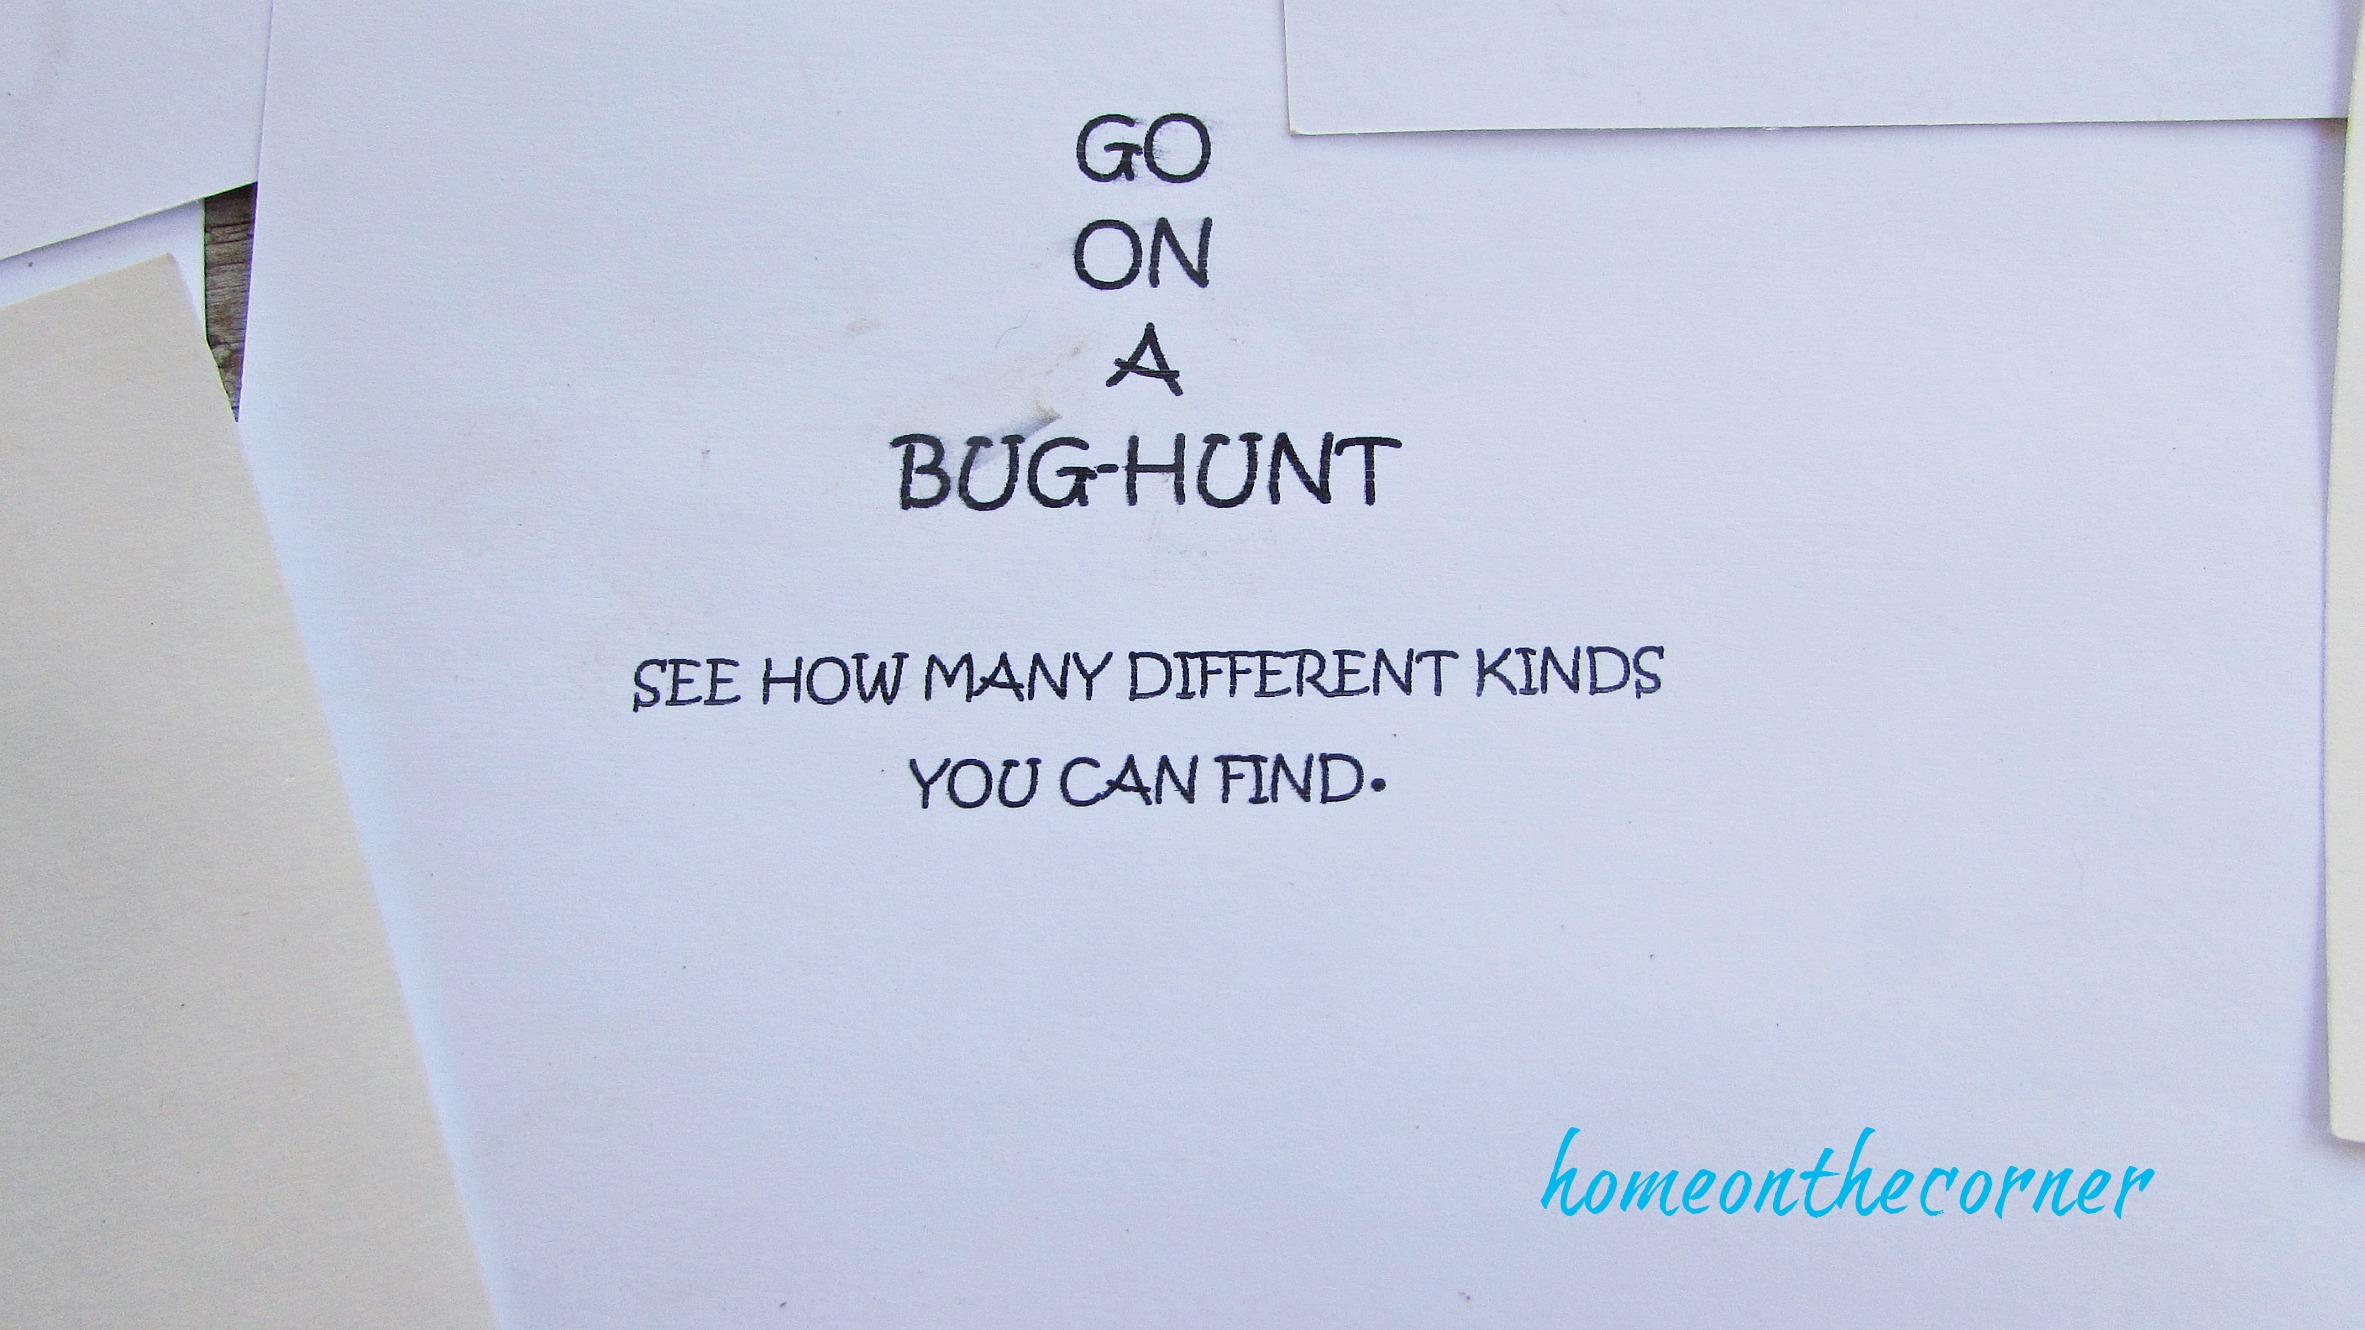 GO
ON
A
BUG-HUNT
SEE HOW MANY DIFFERENT KINDS
YOU CAN FIND.
homeonthecorner